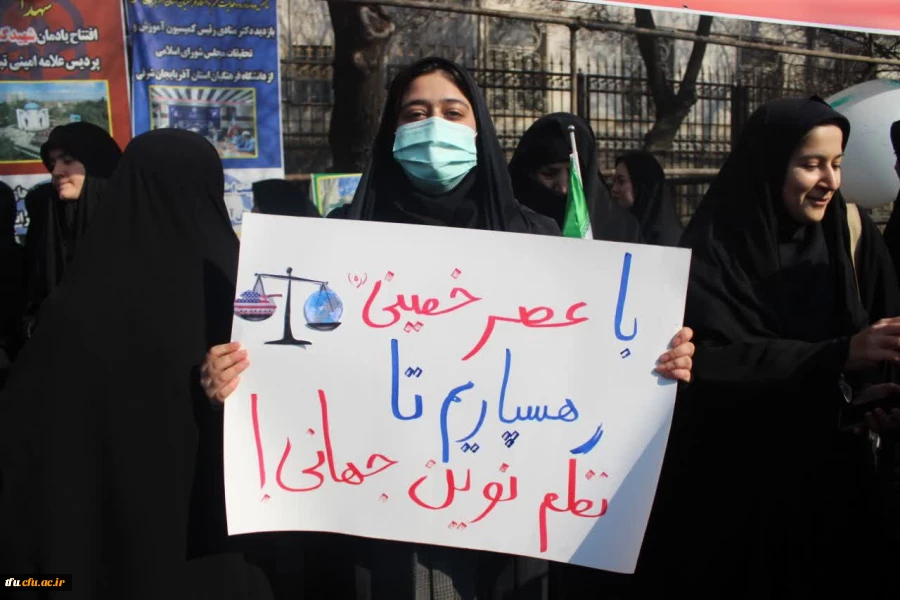 شهدا
افتتاح یادمان شهید گ
پردیس علامه امینی تب
بازدید دکتر منادی رئیس کمیسیون آموزش و
تحقیقات مجلس شورای اسلامی
از دانشگاه فرهنگیان استان آذربایجان شرقی
با عصر خمینی (ره)
رهسپاریم تا
نظم نوین جهانی!
tfu.cfu.ac.ir